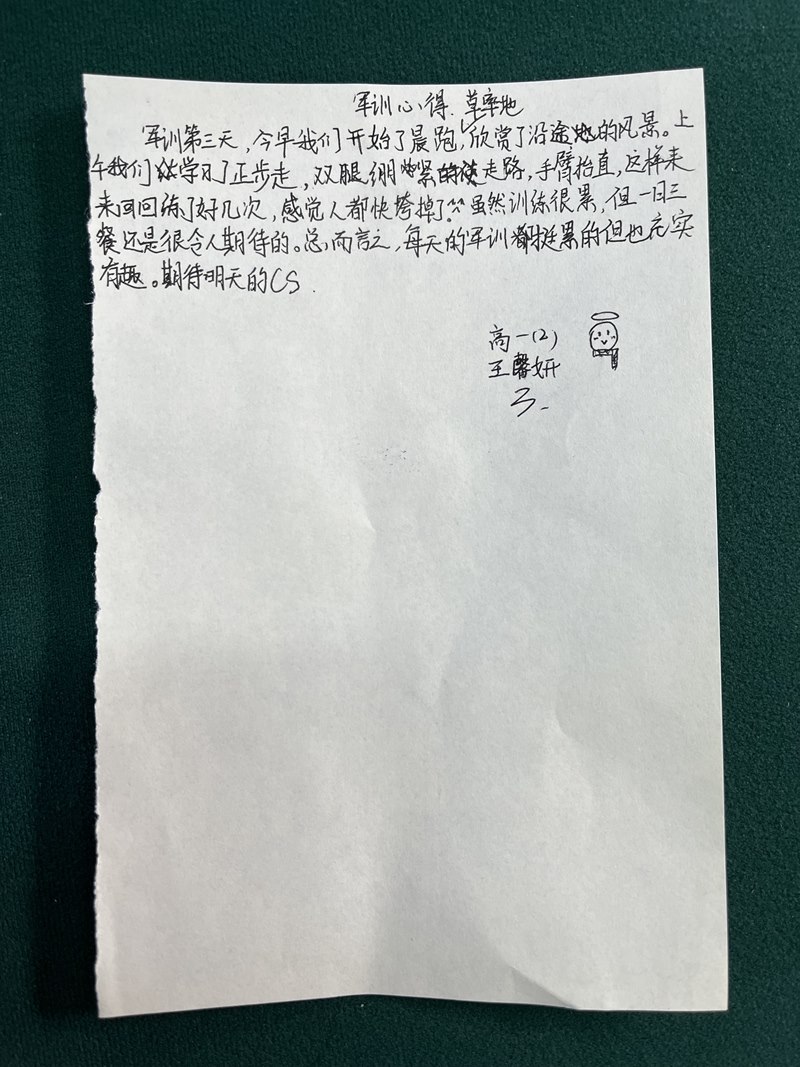 军训心得
草率地
军训第三天,今早我们开始了晨跑,欣赏了沿途的风景。上
午我们学习了正步走,双腿绷紧走路,手臂抬直,这样来
来回回练了好几次,感觉人都快垮掉了^^虽然训练很累,但一日三
餐还是很令人期待的。总而言之,每天的军训都挺累的但也充实
有趣。期待明天的CS.
高一(2)
王馨妍
3.